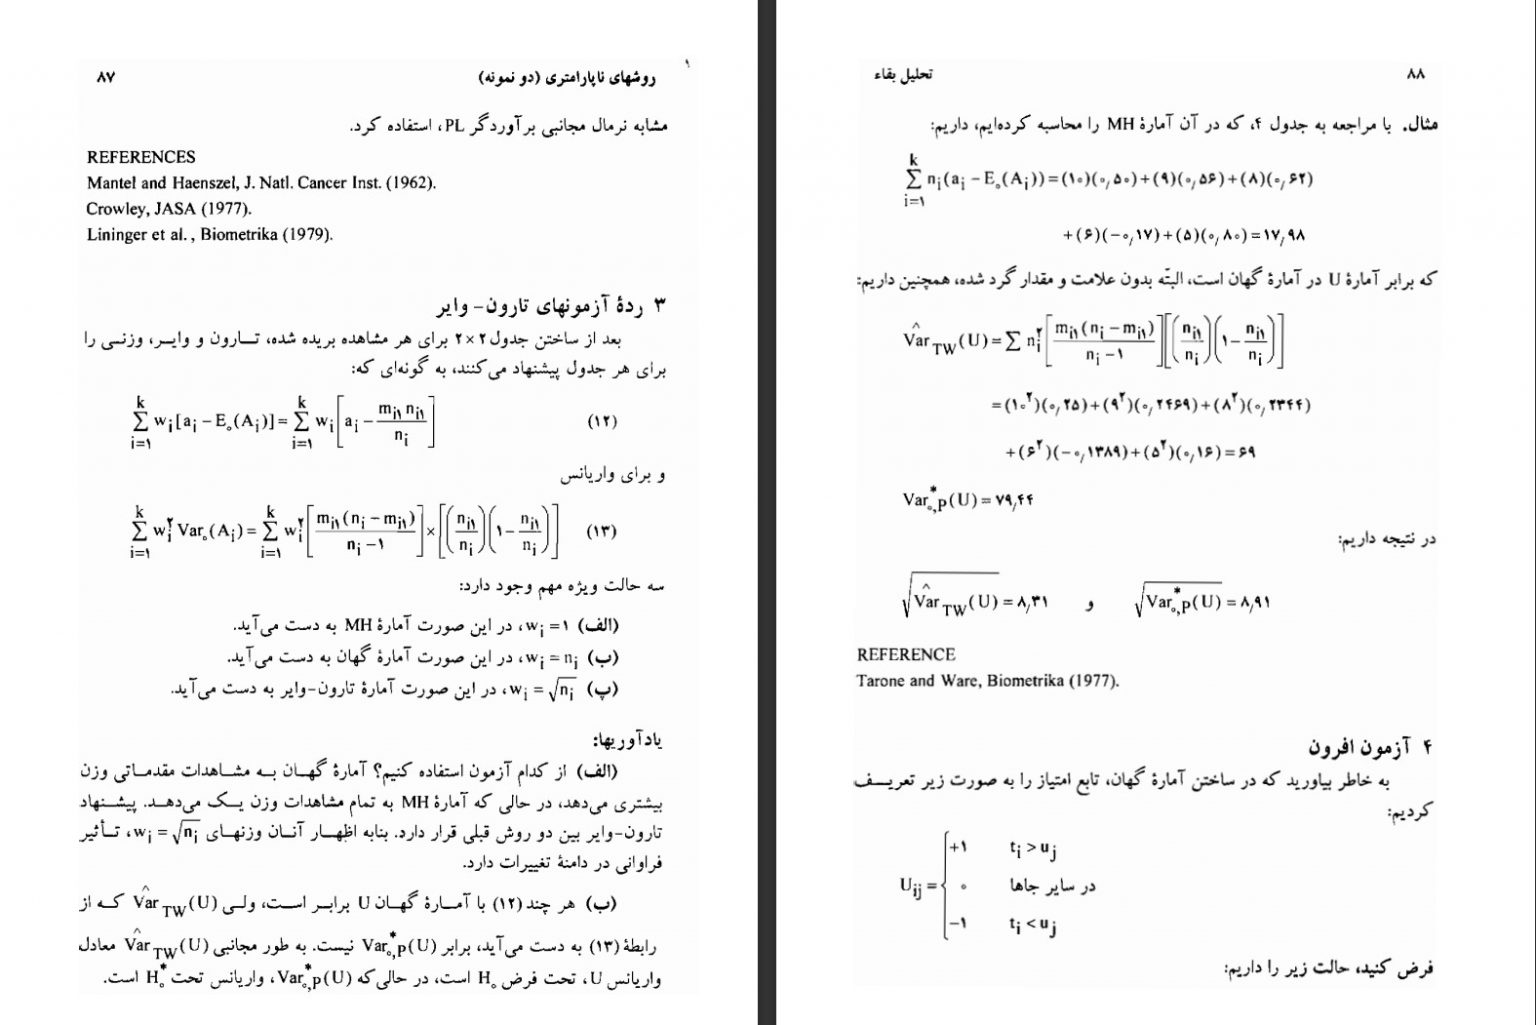 ۸۷ روشهای ناپارامتری (دو نمونه)
مشابه نرمال مجانبی برآوردگر PL، استفاده کرد.
REFERENCES
Mantel and Haenszel, J. Natl. Cancer Inst. (1962).
Crowley, JASA (1977).
Lininger et al., Biometrika (1979).
۳ ردهٔ آزمونهای تارون- وایر
بعد از ساختن جدول ۲×۲ برای هر مشاهده بریده شده، تــارون و وایــر، وزنــی را
برای هر جدول پیشنهاد می‌کنند، به گونه‌ای که:
∑_{i=۱}^{k} w_i[a_i − E_۰(A_i)] = ∑_{i=۱}^{k} w_i [a_i − (m_{i۱} n_{i۱})/n_i] (۱۲)
و برای واریانس
∑_{i=۱}^{k} w_i^۲ Var_۰(A_i) = ∑_{i=۱}^{k} w_i^۲ [m_{i۱}(n_i − m_{i۱})/(n_i − ۱)] × [(n_{i۱}/n_i)(۱ − n_{i۱}/n_i)] (۱۳)
سه حالت ویژه مهم وجود دارد:
(الف) w_i = ۱، در این صورت آمارهٔ MH به دست می‌آید.
(ب) w_i = n_i، در این صورت آمارهٔ گهان به دست می‌آید.
(پ) w_i = √n_i، در این صورت آمارهٔ تارون-وایر به دست می‌آید.
یادآوریها:
(الف) از کدام آزمون استفاده کنیم؟ آمارهٔ گهــان بــه مشــاهدات مقدمــاتی وزن
بیشتری می‌دهد، در حالی که آمارهٔ MH به تمام مشاهدات وزن یــک می‌دهــد. پیشــنهاد
تارون-وایر بین دو روش قبلی قرار دارد. بنابه اظهــار آنــان وزنهــای w_i = √n_i، تــأثیر
فراوانی در دامنهٔ تغییرات دارد.
(ب) هر چند (۱۲) با آمــارهٔ گهــان U برابــر اســت، ولــی V̂ar_{TW}(U) کــه از
رابطهٔ (۱۳) به دست می‌آید، برابر Var*_{۰,P}(U) نیست. به طور مجانبی V̂ar_{TW}(U) معادل
واریانس U، تحت فرض H_۰ است، در حالی‌که Var*_{۰,P}(U)، واریانس تحت H*_۰ است.
تحلیل بقاء ۸۸
مثال. با مراجعه به جدول ۴، که در آن آمارهٔ MH را محاسبه کرده‌ایم، داریم:
∑_{i=۱}^{k} n_i(a_i − E_۰(A_i)) = (۱۰)(۰٫۵۰)+(۹)(۰٫۵۶)+(۸)(۰٫۶۲)
+(۶)(−۰٫۱۷)+(۵)(۰٫۸۰)=۱۷٫۹۸
که برابر آمارهٔ U در آمارهٔ گهان است، البتّه بدون علامت و مقدار گرد شده، همچنین داریم:
V̂ar_{TW}(U) = ∑ n_i^۲ [m_{i۱}(n_i − m_{i۱})/(n_i − ۱)][(n_{i۱}/n_i)(۱ − n_{i۱}/n_i)]
=(۱۰^۲)(۰٫۲۵)+(۹^۲)(۰٫۲۴۶۹)+(۸^۲)(۰٫۲۳۴۴)
+(۶^۲)(−۰٫۱۳۸۹)+(۵^۲)(۰٫۱۶)=۶۹
Var*_{۰,P}(U) = ۷۹٫۴۴
در نتیجه داریم:
√V̂ar_{TW}(U) = ۸٫۳۱ و √Var*_{۰,P}(U) = ۸٫۹۱
REFERENCE
Tarone and Ware, Biometrika (1977).
۴ آزمون افرون
به خاطر بیاورید که در ساختن آمارهٔ گهان، تابع امتیاز را به صورت زیر تعریــف
کردیم:
+۱ t_i > u_j
U_{ij} = { ۰ در سایر جاها
−۱ t_i < u_j
فرض کنید، حالت زیر را داریم: